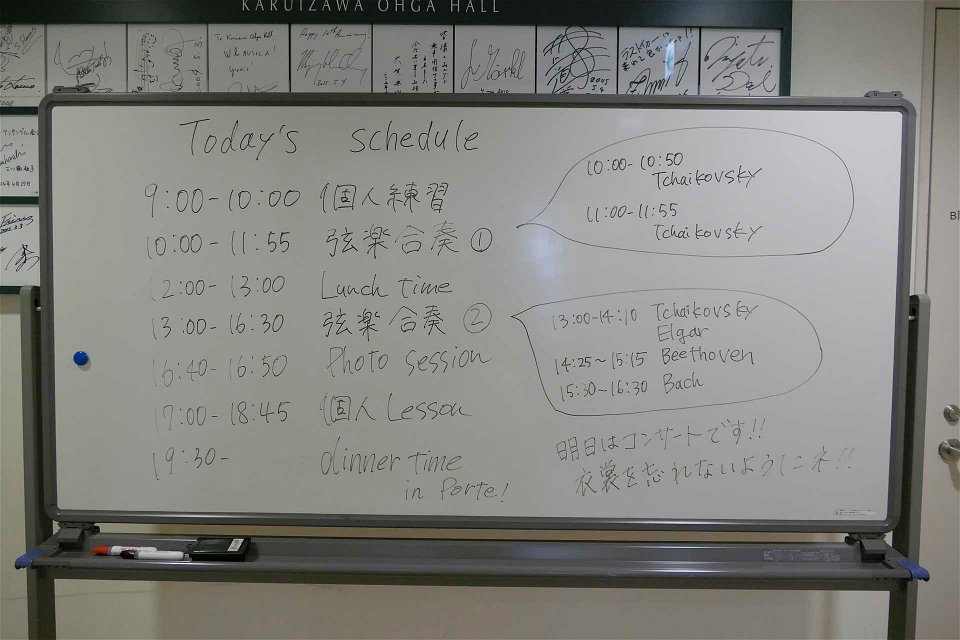 KARUIZAWA OHGA HALL
Today's schedule
9:00-10:00 個人練習
10:00-11:55 弦楽合奏①
12:00-13:00 Lunch time
13:00-16:30 弦楽合奏②
16:40-16:50 Photo session
17:00-18:45 個人Lesson
19:30- dinner time
in Porte!
10:00-10:50
Tchaikovsky
11:00-11:55
Tchaikovsky
13:00-14:10 Tchaikovsky
Elgar
14:25~15:15 Beethoven
15:30-16:30 Bach
明日はコンサートです!!
衣裳を忘れないようにネ!!